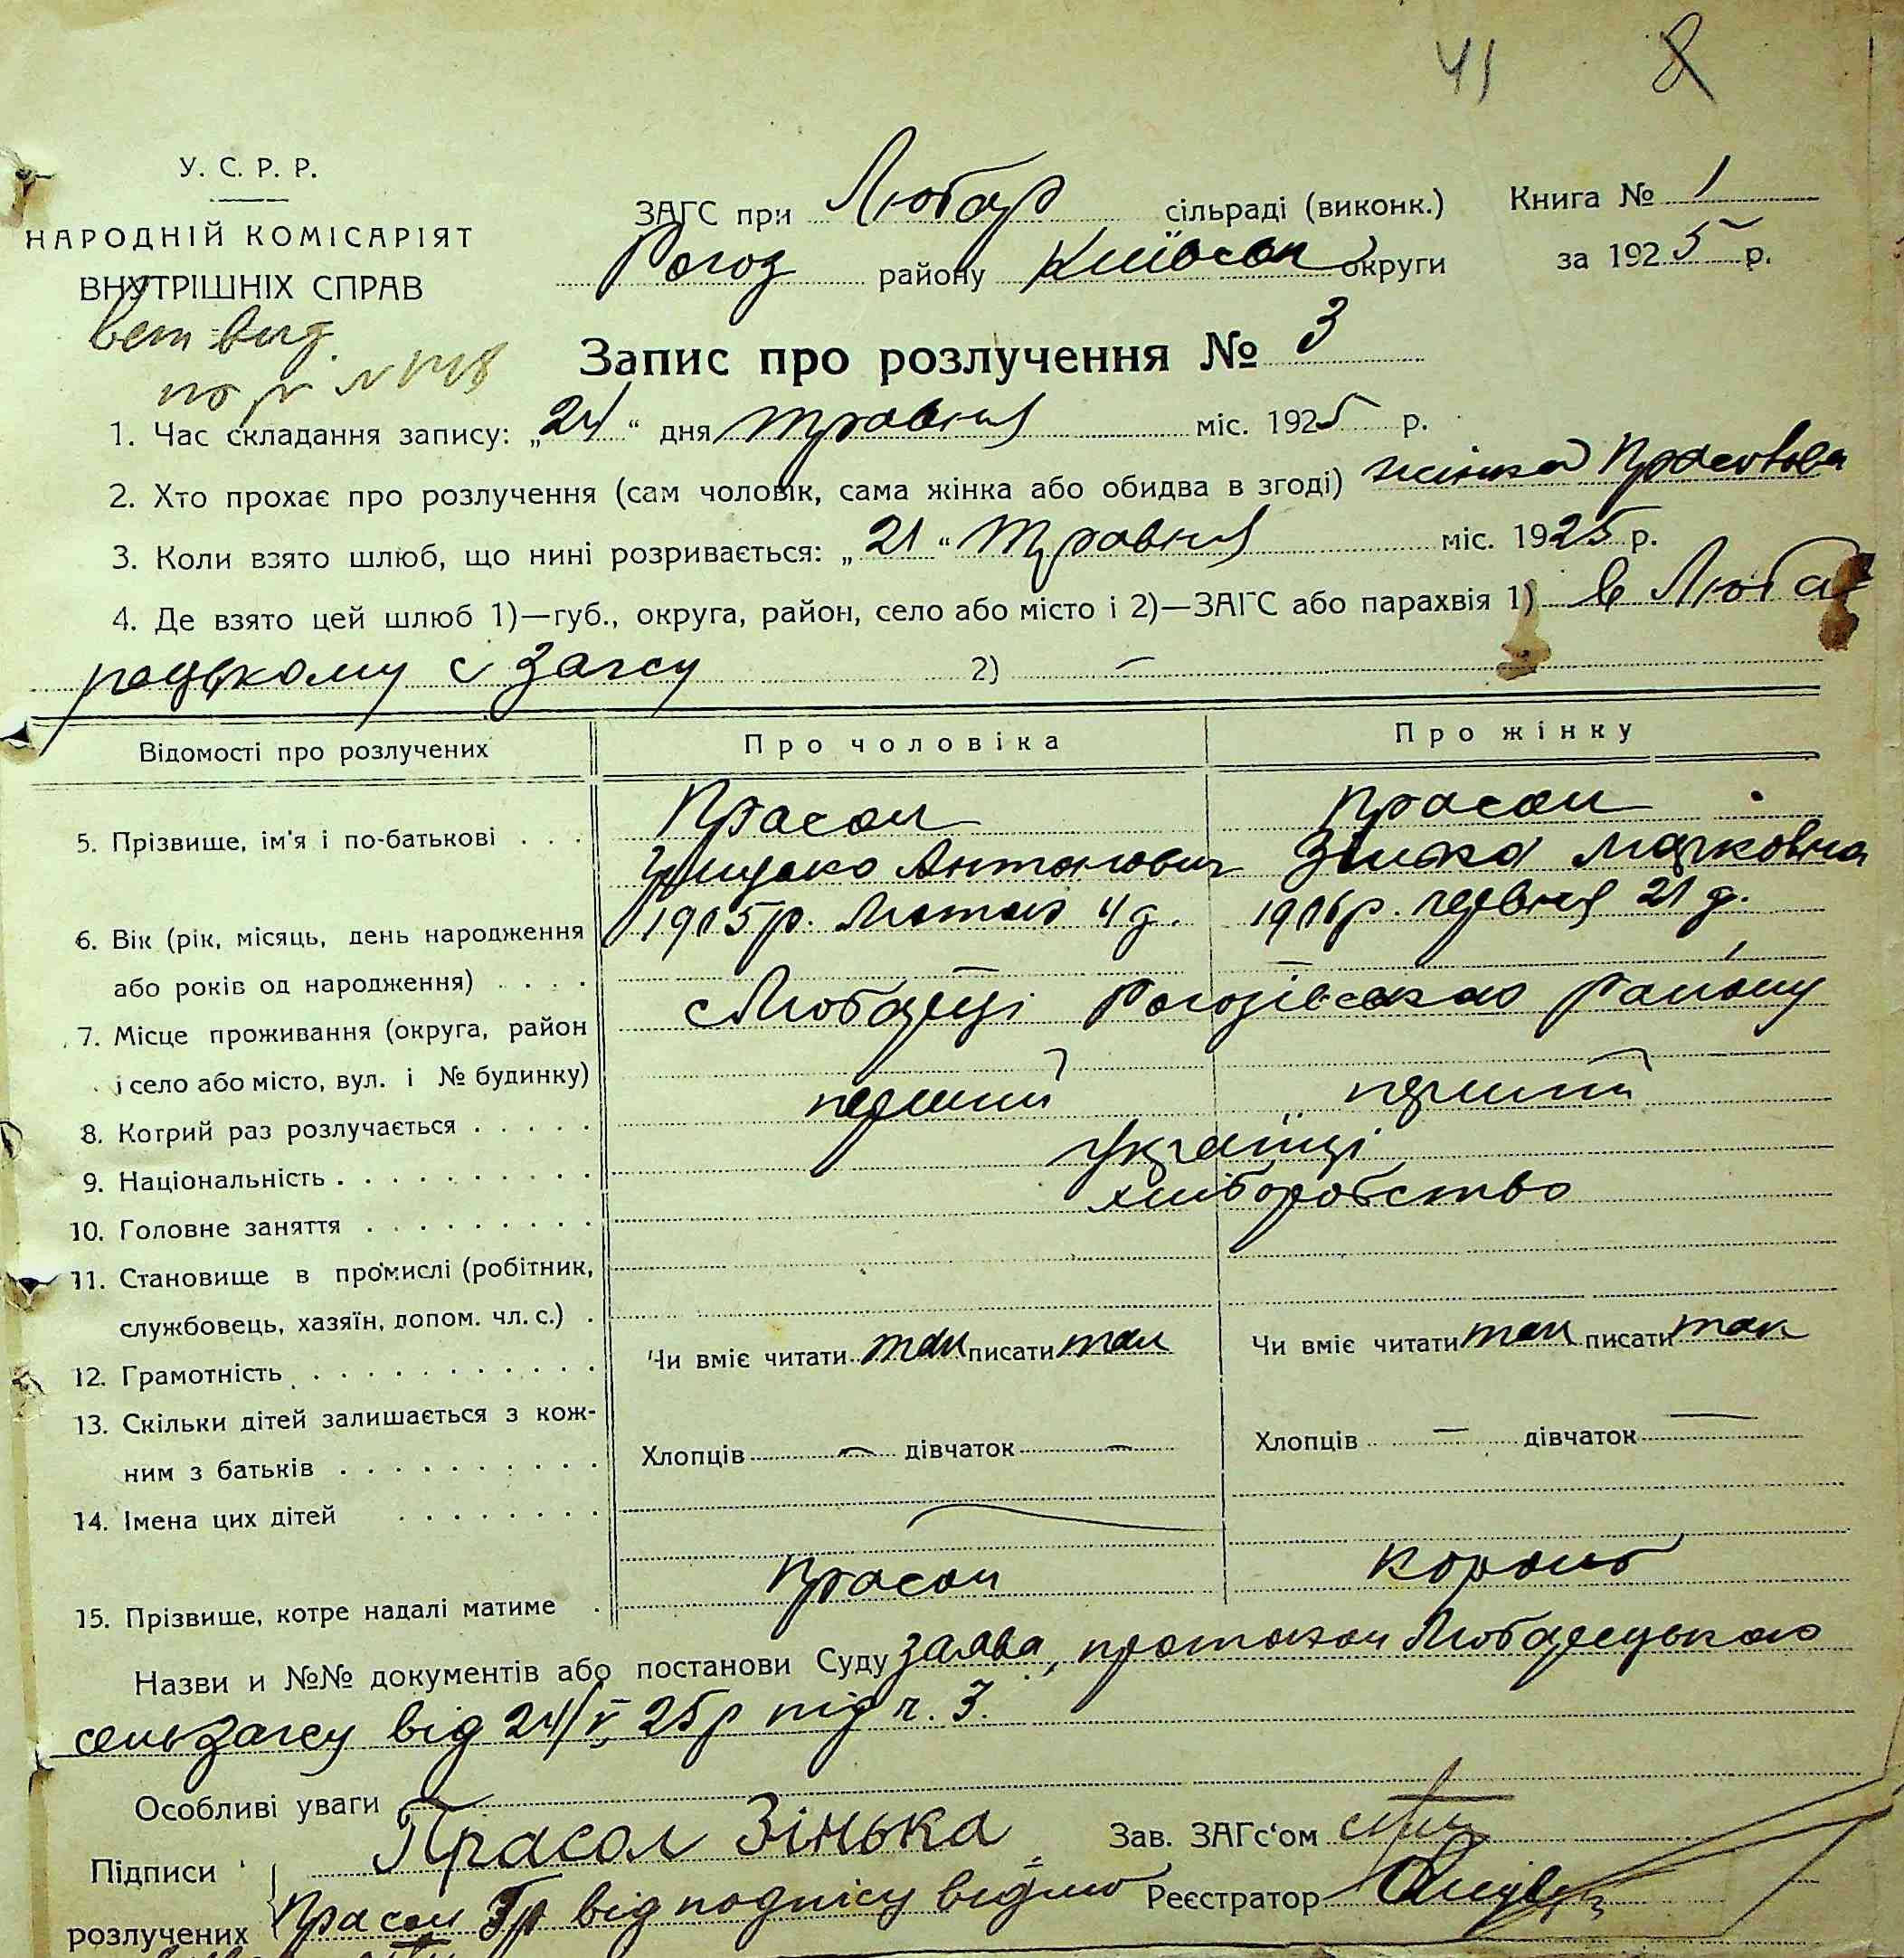 41 8
У. С. Р. Р.
НАРОДНІЙ КОМІСАРІЯТ
ВНУТРІШНІХ СПРАВ
ЗАГС при Любар сільраді (виконк.)
Рогоз району Київськ округи
Книга № 1
за 1925 р.
Запис про розлучення № 3
1. Час складання запису: „24“ дня травня міс. 1925 р.
2. Хто прохає про розлучення (сам чоловік, сама жінка або обидва в згоді) жінка
3. Коли взято шлюб, що нині розривається: „21“ травня міс. 1925 р.
4. Де взято цей шлюб 1)—губ., округа, район, село або місто і 2)—ЗАГС або парахвія 1) в Люба
рецькому с Загсу 2) —
Відомості про розлучених Про чоловіка Про жінку
5. Прізвище, ім'я і по-батькові . . . Прасол Прасол
Грицько Антонович Зінька Марковна
6. Вік (рік, місяць, день народження 1905 р. Лютого 4 д. 1906 р. червня 21 д.
або років од народження) . . . .
7. Місце проживання (округа, район с Любарці Рогозівського району
і село або місто, вул. і № будинку)
8. Котрий раз розлучається . . . . . перший перший
9. Національність . . . . . . . . . . Українці
10. Головне заняття . . . . . . . . . хліборобство
11. Становище в промислі (робітник,
службовець, хазяїн, допом. чл. с.) .
12. Грамотність . . . . . . . . . . . Чи вміє читати так писати так Чи вміє читати так писати так
13. Скільки дітей залишається з кож-
ним з батьків . . . . . . . . . . Хлопців — дівчаток — Хлопців — дівчаток —
14. Імена цих дітей . . . . . . . . —
15. Прізвище, котре надалі матиме . Прасол Король
Назви и №№ документів або постанови Суду заява, протокол Любарецького
сельзагсу від 24/V 25 р під ч. 3.
Особливі уваги
Підписи Прасол Зінька Зав. ЗАГс‘ом
розлучених Прасол Гр від подпісу Реєстратор